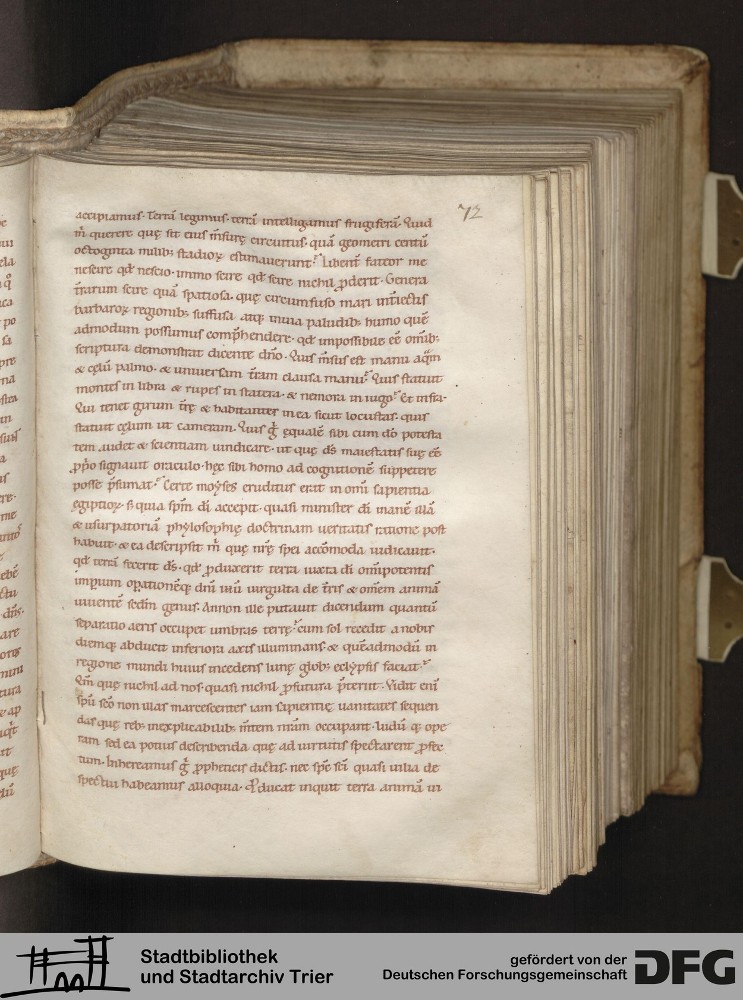 72
accipiamus. Terrā legimus. terrā intelligamus frugiferā. Quid
m̄ querere quę sit eius m̄surę circuitus. quā geometri centū
octoginta milib; stadioꝝ estimauerunt? Libent̄ fateor me
nescire qđ nescio. immo scire qđ scire nichil ꝓderit. Genera
t̄rarum scire quā spatiosa. quę circumfuso mari int̄iectis
barbaroꝝ regionib; suffusa atq; inuia paludib; humo quē
admodum possumus comp̄hendere. qđ impossibile eē om̄ib;
scriptura demonstrat dicente dn̄o. Quis m̄sus est manu aq̄m
& cęlū palmo. & uniuersam t̄ram clausa manu? Quis statuit
montes in libra & rupes in statera. & nemora in iugo? Et infra.
Qui tenet girum t̄rę & habitantes in ea sicut locustas. quis
statuit cęlum ut cameram. Quis g̊ equalē sibi cum dō potesta
tem .uidet & scientiam uindicare. ut quę ds̄ maiestatis suę eē
ꝓp̄o signauit oraculo. hęc sibi homo ad cognitionē suppetere
posse p̄sumat? Certe moyses eruditus erat in om̄i sapientia
ęgiptioꝝ. s; quia sp̄m dī accepit. quasi minister dī inanē illā
& usurpatoriā phylosophię doctrinam ueritatis ratione post
habuit. & ea descripsit m̄ quę nr̄ę spei accōmoda iudicauit.
qđ terrā fecerit ds̄. qđ ꝓduxerit terra iuxta dī om̄ipotentis
imꝑium oꝑationēq; dn̄i iħū uirgulta de t̄ris & om̄em animā
uiuentē sedm̄ genus. Annon ille putauit dicendum quantū
separatio aeris occupet umbras terrę? cum sol recedit a nobis
diemq; abducit inferiora axis illuminans. & quēadmodū in
regione mundi huius incedens lunę glob; eclypsis faciat?
Qm̄ quę nichil ad nos. quasi nichil ꝓfutura p̄terit. Vidit eni
sp̄u sc̄o non illas marcescentes iam sapientię uanitates sequen
das quę reb; inexplicabilib; m̄tem nr̄am occupant. ludū q; ope
ram sed ea potius describenda quę ad uirtutis spectarent ꝓfec
tum. Inhereamus g̊ ꝓpheticis dictis. nec sp̄e sc̄i quasi uilia de
spectui habeamus alloquia. Ꝓducat inquit terra animā ui
Stadtbibliothek
und Stadtarchiv Trier
gefördert von der
Deutschen Forschungsgemeinschaft
DFG